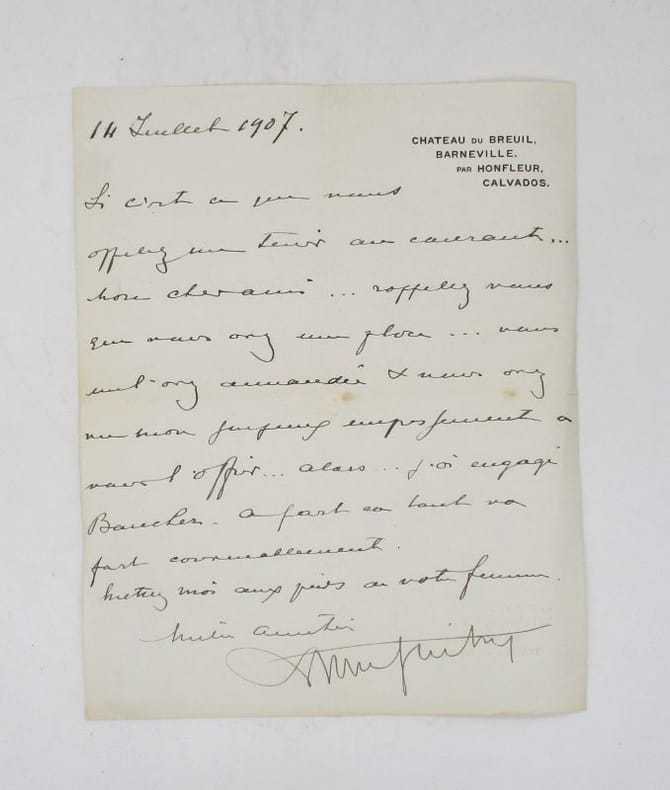 14 Juillet 1907.
CHATEAU DU BREUIL,
BARNEVILLE.
PAR HONFLEUR,
CALVADOS.
Si c'est ce que vous
appelez me tenir au courant...
mon cher ami ... rappelez vous
que vous avez une place ... vous
me l'avez demandée & vous avez
vu mon empressement à
vous l'offrir... alors... j'ai engagé
Baucher. à part ça tout va
fort convenablement.
Mettez moi aux pieds de votre femme.
Mille amitiés
Guitry